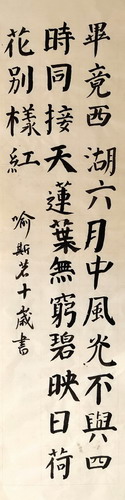 畢竟西湖六月中風光不與四
時同接天蓮葉無窮碧映日荷
花別樣紅
喻斯茗十歲書